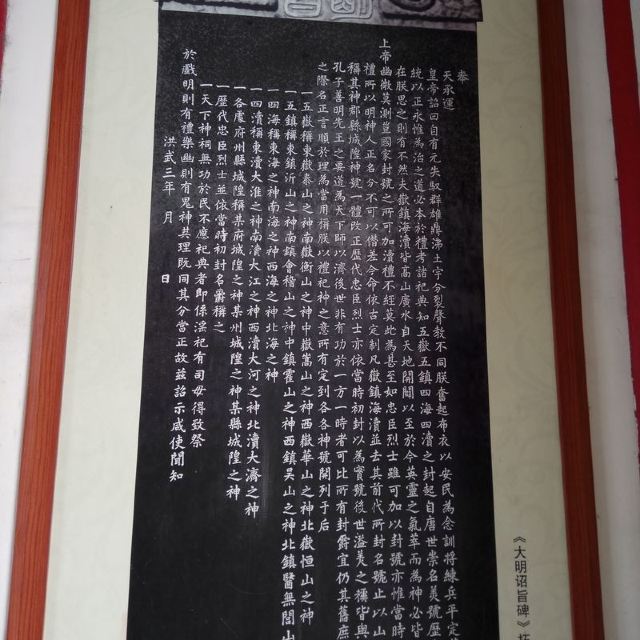 奉
天承運
皇帝詔曰自有元失馭群雄鼎沸土宇分裂聲教不同朕奮起布衣以安民為念訓將練兵平定
統以正永惟為治之道必本於禮考諸祀典知五嶽五鎮四海四瀆之封起自唐世崇名美號歷
在朕思之則有不然夫嶽鎮海瀆皆高山廣水自天地開闢以至於今英靈之氣萃而為神必皆
上帝幽微莫測豈國家封號之所可加瀆禮不經莫此為甚至如忠臣烈士雖可加以封號亦惟當時
禮所以明神人正名分不可以僭差今命依古定制凡嶽鎮海瀆並去其前代所封名號止以山
稱其神郡縣城隍神號一體改正歷代忠臣烈士亦依當時初封以為實號後世溢美之稱皆與
孔子善明先王之要道為天下師以濟後世非有功於一方一時者可比所有封爵宜仍其舊庶
之際名正言順於理為當用稱朕以禮祀神之意所有定到各各神號開列于后
一五嶽稱東嶽泰山之神南嶽衡山之神中嶽嵩山之神西嶽華山之神北嶽恒山之神
一五鎮稱東鎮沂山之神南鎮會稽山之神中鎮霍山之神西鎮吳山之神北鎮醫無閭山
一四海稱東海之神南海之神西海之神北海之神
一四瀆稱東瀆大淮之神南瀆大江之神西瀆大河之神北瀆大濟之神
一各處府州縣城隍稱某府城隍之神某州城隍之神某縣城隍之神
一歷代忠臣烈士並依當時初封名爵稱之
一天下神祠無功於民不應祀典者即係淫祀有司毋得致祭
於戲明則有禮樂幽則有鬼神其理既同其分當正故茲詔示咸使聞知
洪武三年 月 日
《大明诏旨碑》拓